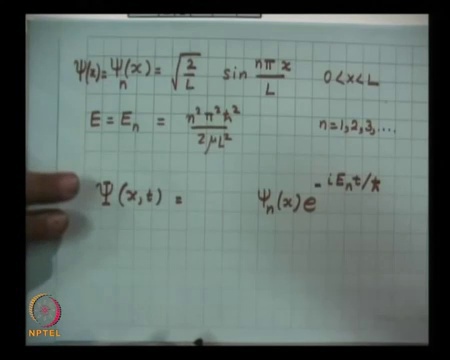 ψ(x) = ψn(x) = √(2/L) sin nπx/L 0<x<L
E = En = n²π²ħ²/2μL² n=1,2,3,....
Ψ(x,t) = ψn(x) e^-iEnt/ħ
NPTEL